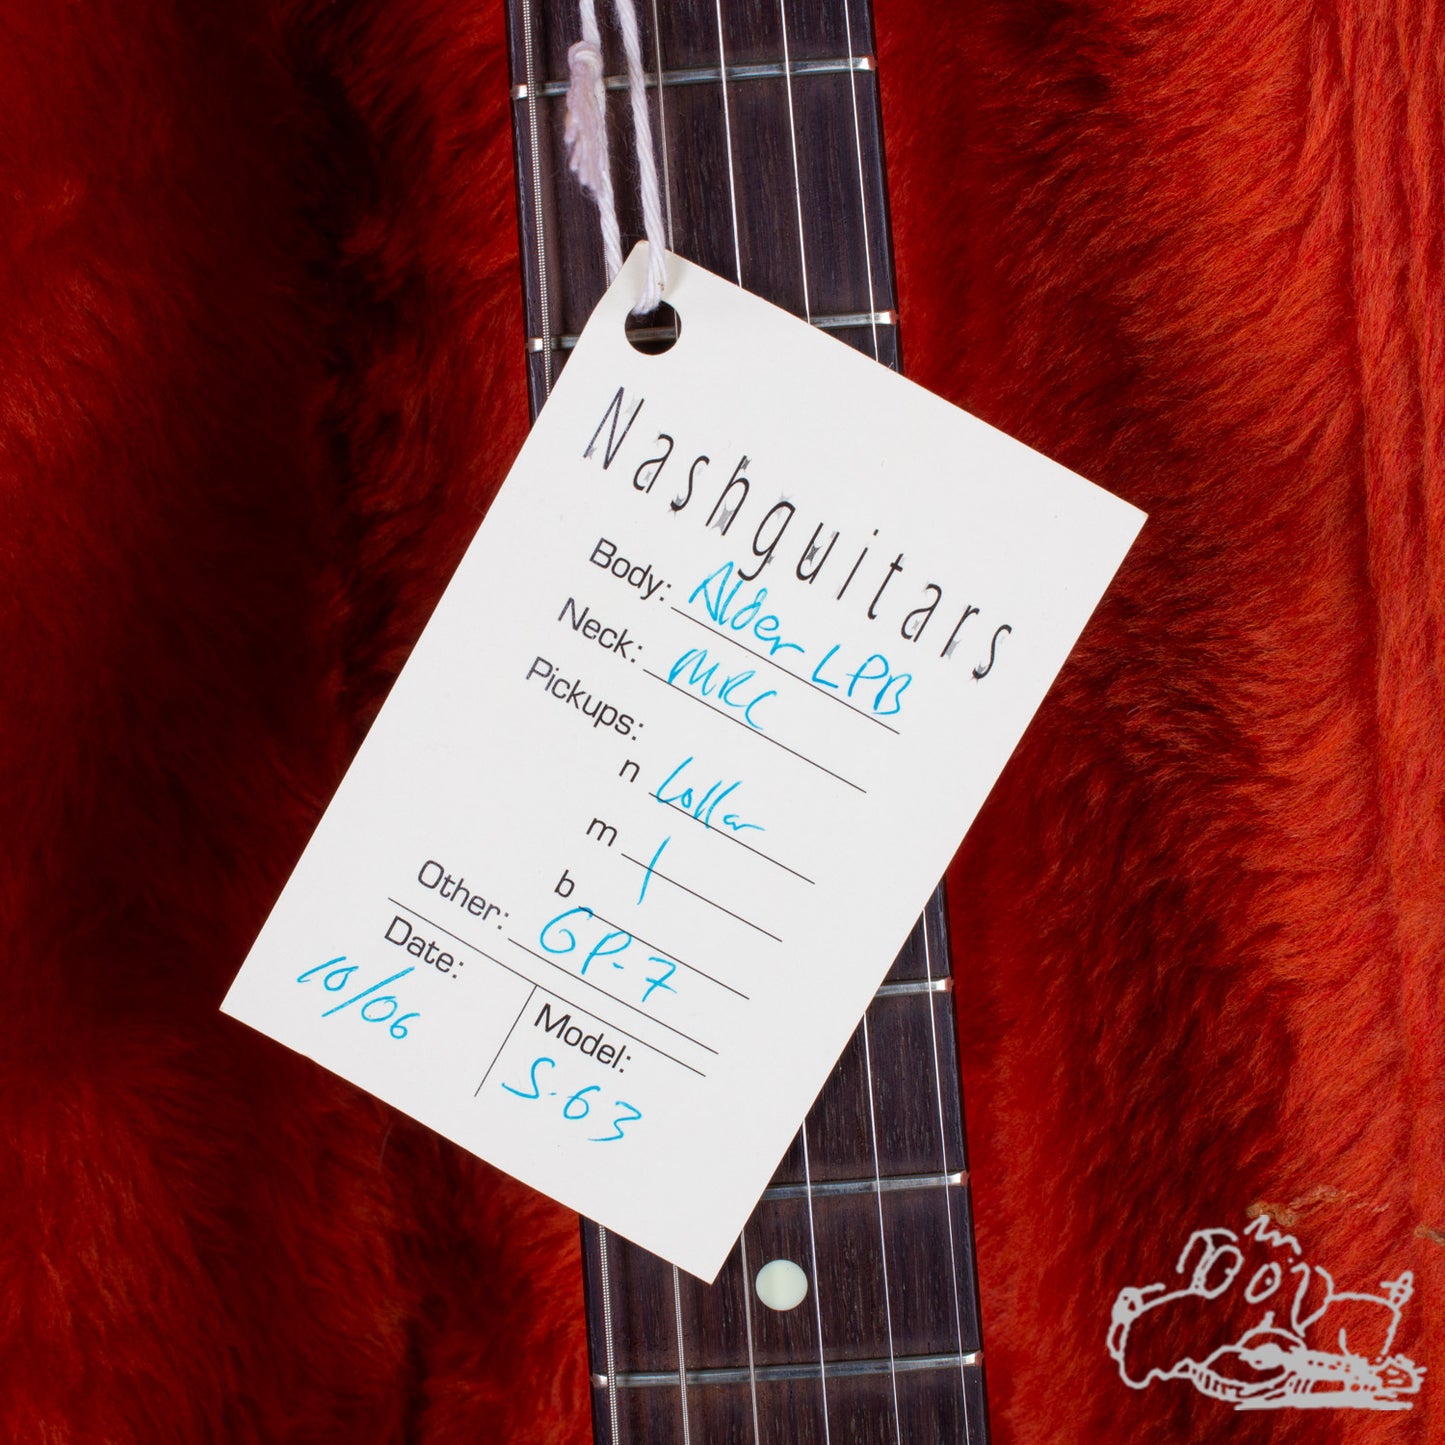 Nashguitars
Body: Alder LPB
Neck: MRC
Pickups:
n Lollar
m |
b
Other: GP-7
Date: 10/06
Model: S-63